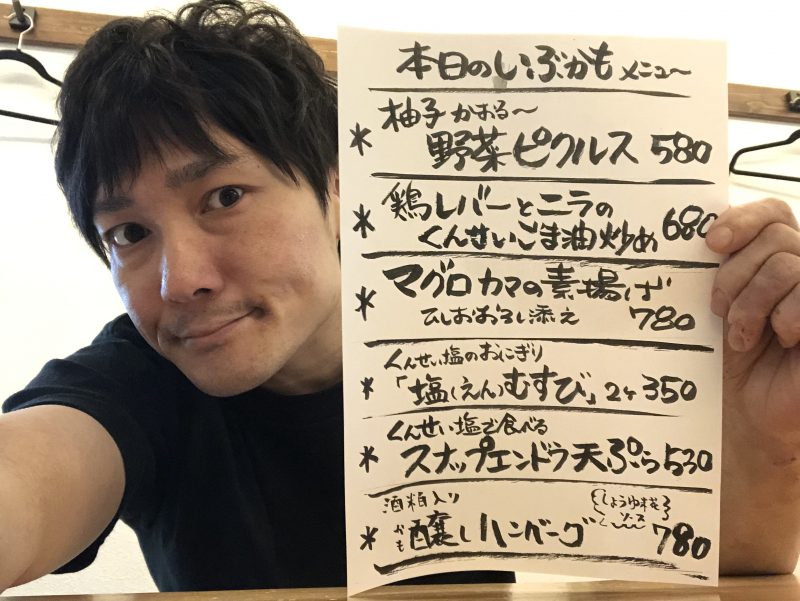 本日のいぶかもメニュ〜
* 柚子かおる〜
野菜ピクルス 580
* 鶏レバーとニラの
くんせいごま油炒め 680
* マグロカマの素揚げ
ひしおおろし添え 780
くんせい塩のおにぎり
* 「塩(えん)むすび」2ケ 350
くんせい塩で食べる
* スナップエンドウ天ぷら 530
酒粕入り {しょうゆ糀ソース}
* 醸しハンバーグ 780
かも